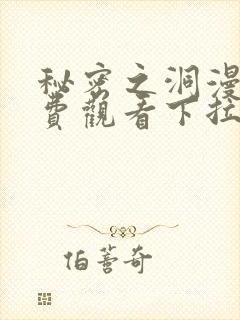 秘密之洞漫
費觀看下拉
伯蒼奇